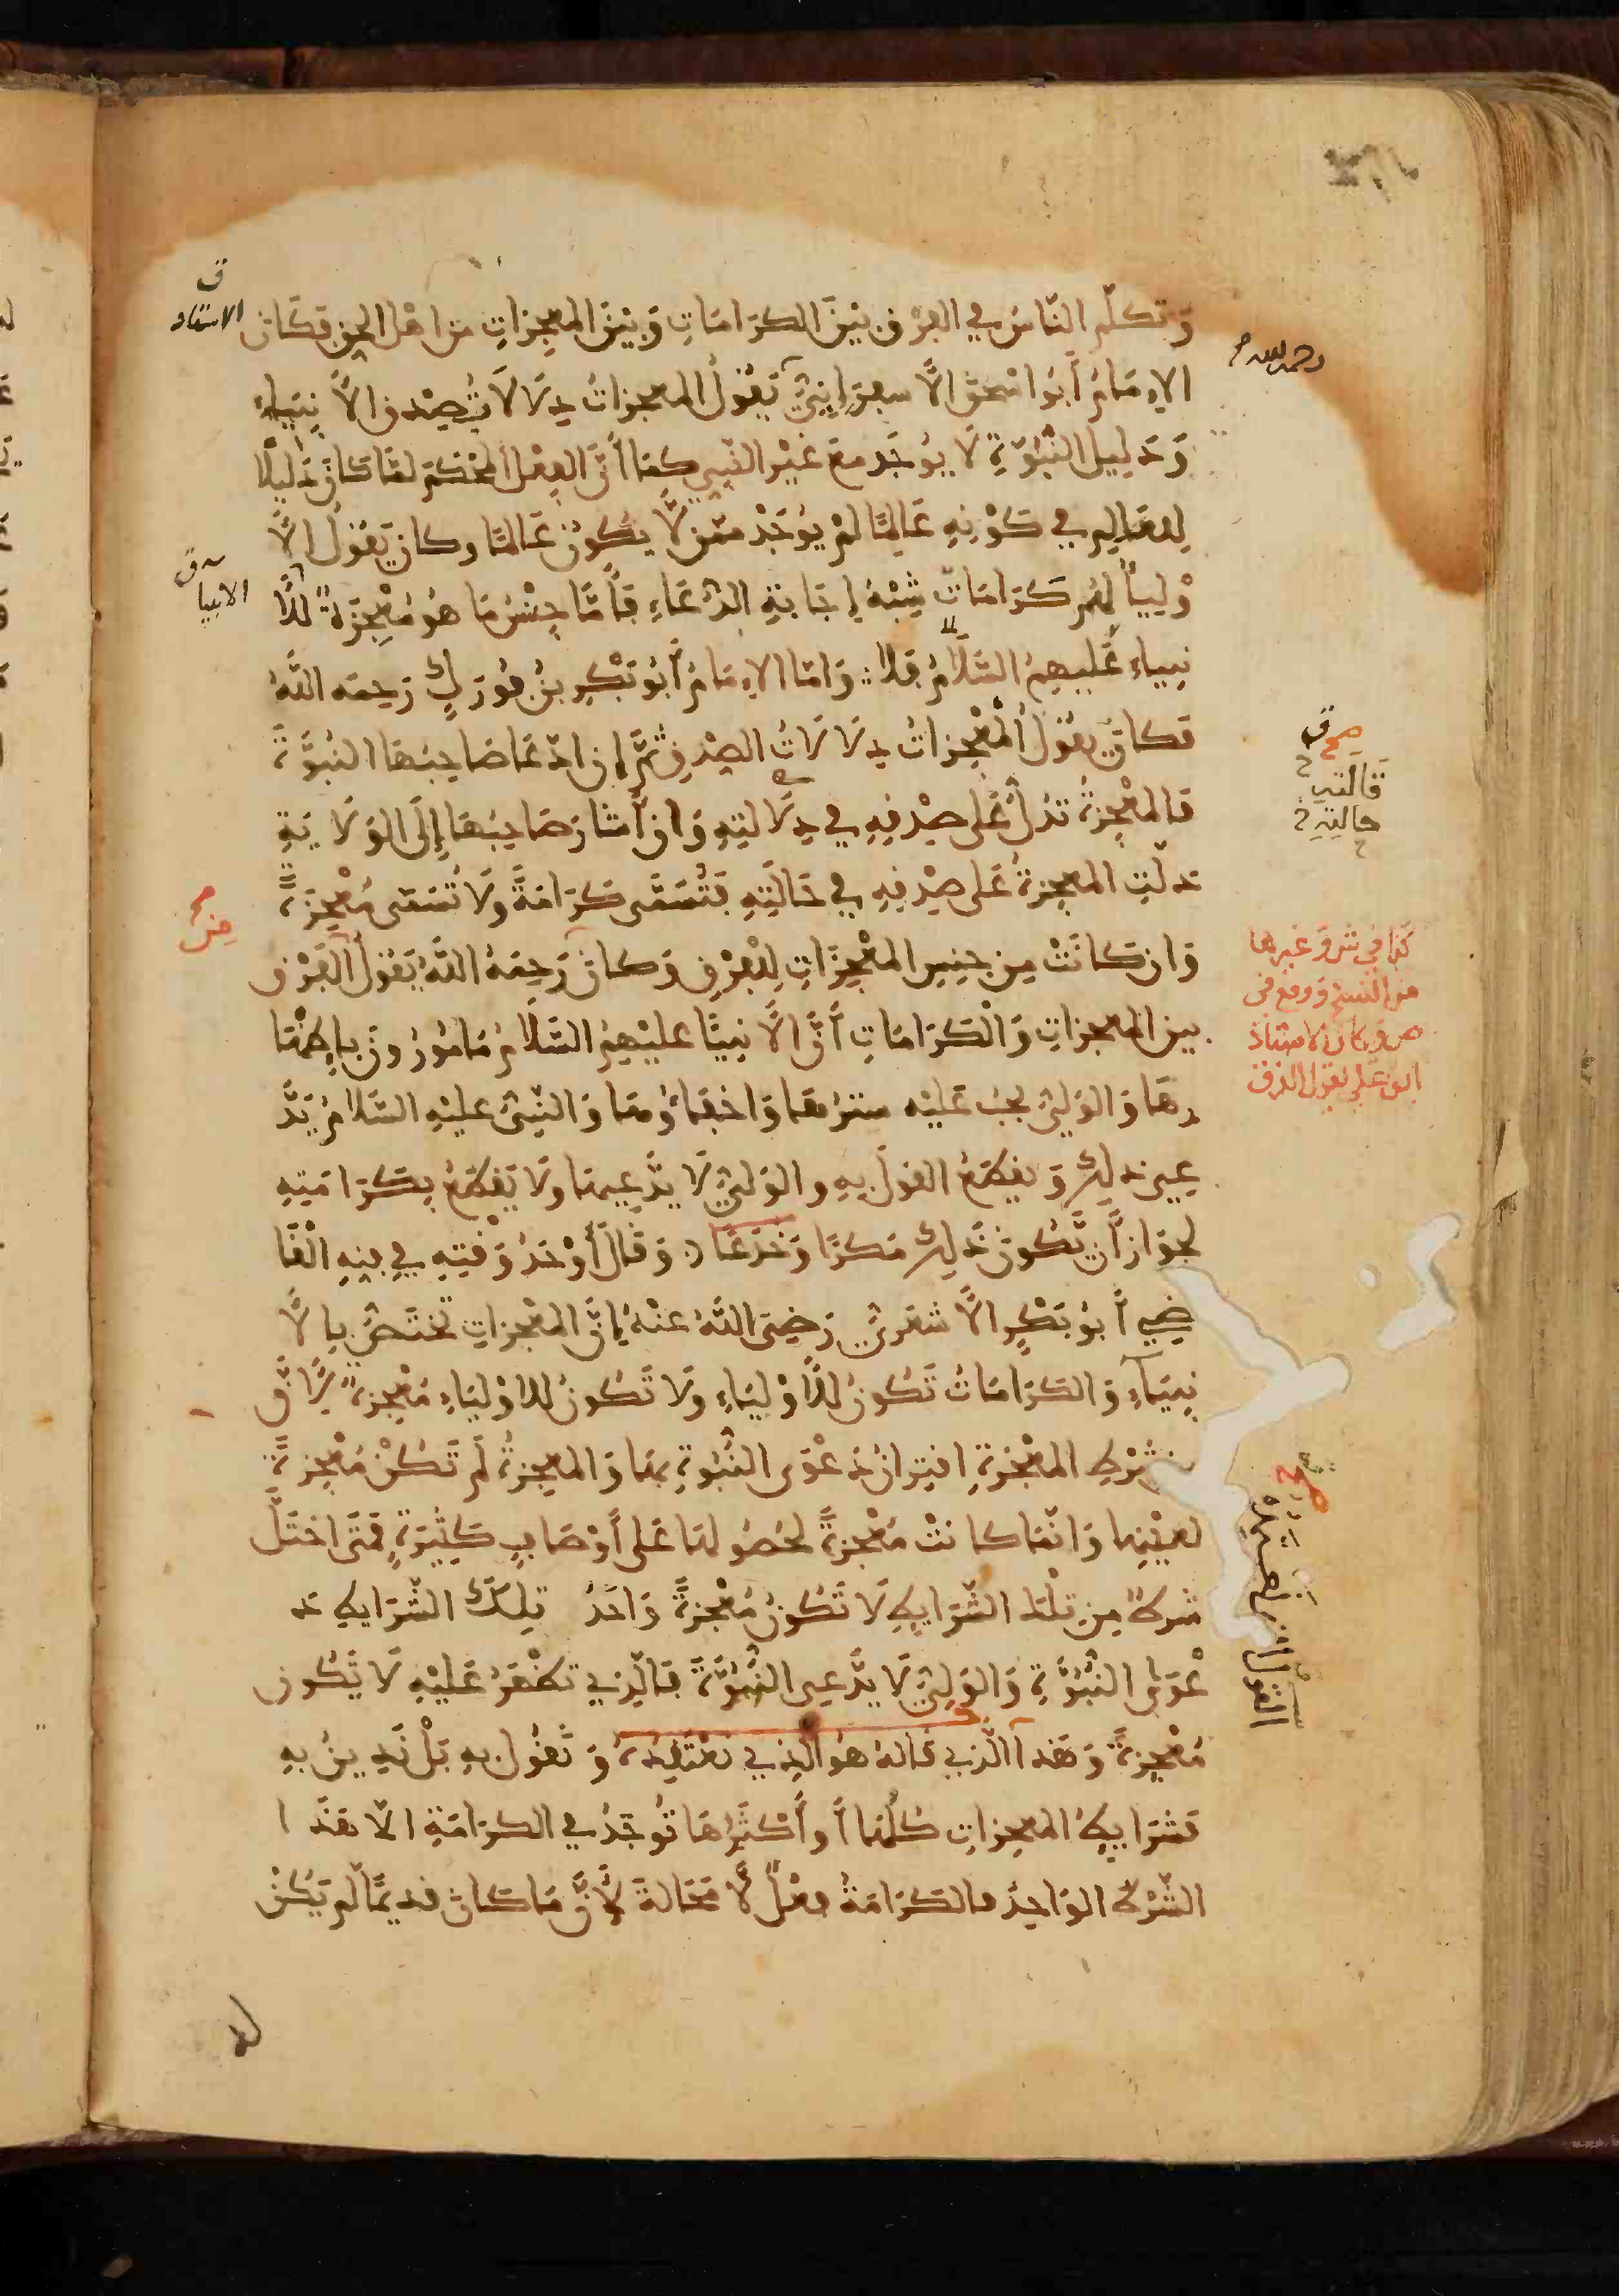 وَتكلّم النّاسُ في الفَرْقِ بَيْنَ الكَرَامَاتِ وَبَيْنَ المعجِزاتِ من اهْل الحق فكَانَ
الاستاد
الاِمَامُ أَبُوا اسْحٰق الاَّ سفرَاينِيّ يَقُولُ المعجزاتُ دِلَالاَتُ صِدْق الاَّ نبِيَاءِ
رحمه الله
وَدَلِيلُ النُّبُوّةِ لَا يُوجَد معَ غَيْرِ النّبِيِ كمَا أَنَّ العِقْلَ المحْكَمَ لمَّا كانَ دَلِيلًا
لِلعَالِمِ في كَوْنِهِ عَالِمًا لمْ يُوجَدْ ممّن لَّا يَكُونُ عَالمًا وكانَ يَقُولُ الاَّ
وْلِيَآُ لهُم كَرَامَاتٌ شِبْهُ إجَابَةِ الدُّعَاءِ فَأَمَّا جِنْسُ مَا هُوَ مُعْجِزَةٌ للاَّ
الانبيا
نبِياءِ عَلَيهِمُ السَّلَامُ فَلَا وَامَّا الاِمَامُ أَبُو بَكْرِ بنُ فُورَكٍ رَحِمَه اللَّهُ
فَكانَ يَقُولُ الْمُعْجِزاتُ دِلَالَاتُ الصِدْقِ ثُمَّ إن ادّعَا صَاحِبُهَا النُبُوَّةَ
فَالمعْجِزةُ تَدُلُّ عَلى صِدْقِهِ في دِلَالَتِهِ وَان أَشَارَ صَاحِبُهَا إِلَى الوَلَايَةِ
صح
قَالَتِهِ
حالتِهِ
دَلّتِ المعجِزةُ عَلى صِدْقِهِ في حَالَتِهِ فَتُسَمَّى كَرَامَةً وَلَا تُسَمَّى مُعْجِزَةً
وَان كَانَتْ مِن جِنسِ المعْجِزَاتِ لِلْفَرْقِ وَكانَ رَحِمَهُ اللَّهُ يَقُولُ الفَرْق
من
بينَ المعجزاتِ وَالْكَرَامَاتِ أَنَّ الاَّ نبِيَّا عليْهِمُ السَّلَامُ مَامُورُونَ بِاِظْهَا
رهَا وَالوَلِيُّ يجب عَلَيْه سترُها وَاخفَاؤُهَا وَالنّبِيُّ عليْهِ السَّلامُ يَدَّ
كذا في ش وَغيرها
من النسخ وَوقع في
ص وَكان الاستاذ
ابو علي يقول الفرق
عِي ذلِك وَيقطَعُ القَولَ بِهِ والوَلِيُّ لَا يَدَّعِيهَا ولَا يَقْطَعُ بِكَرَامَتِهِ
لجوَازِ أَن يَّكُونَ ذَلِك مَكرًا وَخدعًا وَقَالَ أَوْحَدُ وَقْتِهِ في فنِهِ الْقَا
ضِي أَبُو بَكْرٍ الاَّ شعَرِيُّ رَضِيَ اللَّهُ عَنْهُ إِنَّ المعْجزاتِ تخْتَصُّ بِالاَّ
نبِيَاءِ وَالكَرَامَاتُ تَكُونُ للأَوْلِيَاءِ ولَا تَكُونُ للاوْلِيَاءِ مُعْجِزةٌ لِأَنَّ
شَرْطِ المعْجَزةِ اقتِرَانُ دَعْوَى النُّبُوةِ بهَا وَالمعجِزةُ لَم تَكُنْ مُعْجِزةً
لعيْنِها وَانّمَا كانَتْ مُعْجزةً لحُصُولهَا عَلى أَوْصَافٍ كَثِيرَةٍ فمَتَى اخْتَلَّ
شَرطٌ مِن تلْكَ الشّرَايِطِ لَا تَكُونُ مُعْجزةً وَاحَدُ تِلكَ الشّرَايطِ دَ
عْوَى النُّبُوَّةِ وَالوَلِيُّ لَا يَدَّعِي النُّبُوَّةَ فَالّذِي تَظْهَرُ عَلَيْهِ لَا يَكُون
مُعْجِزةً وَهَذا الّذي قَالهُ هُوَ الّذِي نعْتَقِدُهُ وَنَقُولُ بِهِ بَلْ نَدِينُ بِهِ
فشَرَايِطُ المعجِزاتِ كُلُّهَا أَوْ أَكْثَرُهَا تُوجَدُ في الكرَامَةِ الاّ هَذَا
الشَّرْطَ الوَاحِدَ فَالكَرَامَةُ فِعْلٌ لَّا مَحَالَةَ لِأَنَّ مَا كَانَ قدِيمًا لم يَكُنْ